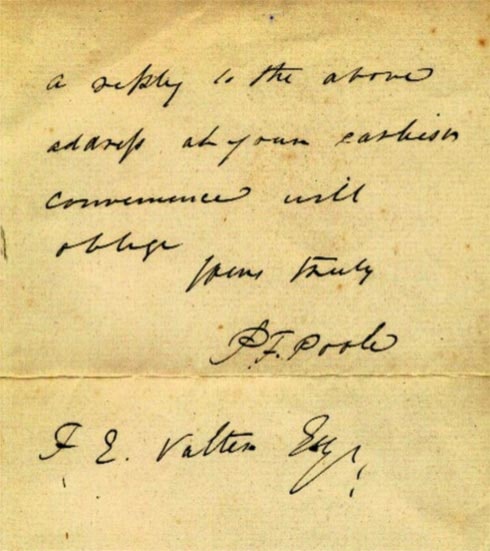 a reply to the above
address at your earliest
convenience will
oblige
yours truly
P.F. Poole
F E. Valter Esqr